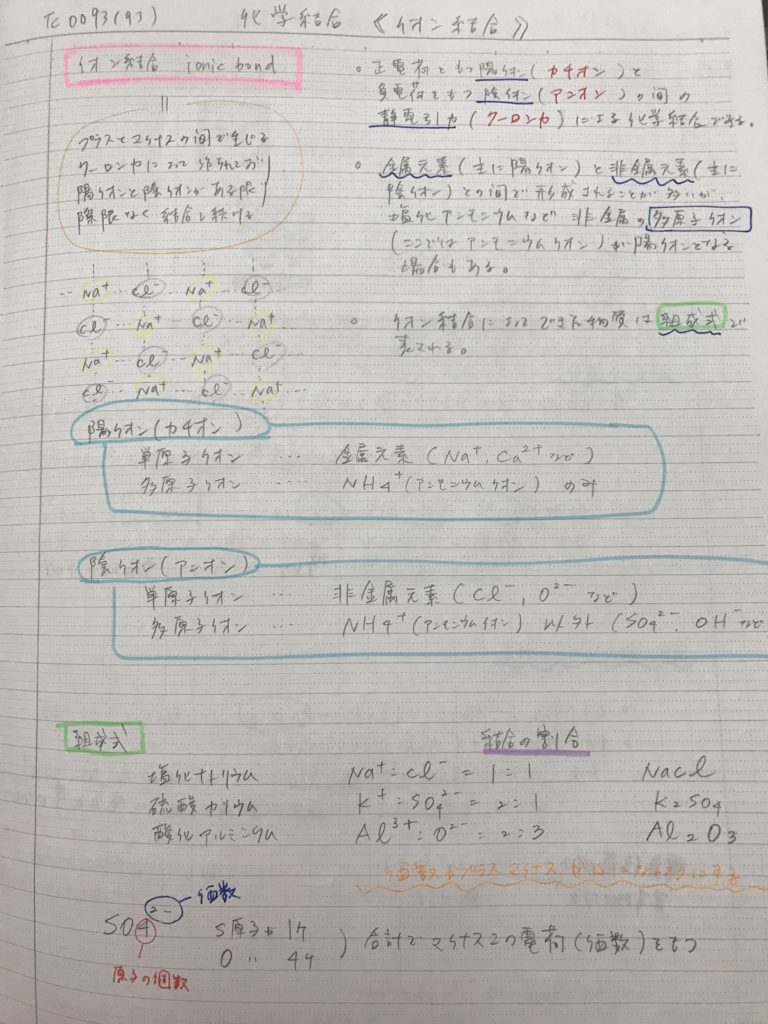 TC0093(93) 化学結合 《イオン結合》
イオン結合 ionic bond
||
プラスとマイナスの間で生じる
クーロン力によって作られており
陽イオンと陰イオンがある限り
際限なく結合し続ける
。正電荷をもつ陽イオン(カチオン)と
負電荷をもつ陰イオン(アニオン)の間の
静電引力(クーロン力)による化学結合である。
。金属元素(主に陽イオン)と非金属元素(主に
陰イオン)との間で形成されることが多いが、
塩化アンモニウムなど非金属の多原子イオン
(ここではアンモニウムイオン)が陽イオンとなる
場合もある。
。イオン結合によってできた物質は組成式で
表される。
Na⁺ Cl⁻ Na⁺ Cl⁻
Cl⁻ Na⁺ Cl⁻ Na⁺
Na⁺ Cl⁻ Na⁺ Cl⁻
Cl⁻ Na⁺ Cl⁻ Na⁺
陽イオン(カチオン)
単原子イオン … 金属元素(Na⁺, Ca²⁺など)
多原子イオン … NH4⁺(アンモニウムイオン)のみ
陰イオン(アニオン)
単原子イオン … 非金属元素(Cl⁻, O²⁻など)
多原子イオン … NH4⁺(アンモニウムイオン)以外(SO4²⁻, OH⁻など
組成式 結合の割合
塩化ナトリウム Na⁺:Cl⁻=1:1 NaCl
硫酸カリウム K⁺:SO4²⁻=2:1 K2SO4
酸化アルミニウム Al³⁺:O²⁻=2:3 Al2O3
価数がプラスマイナス0になるようにする
価数
SO4²⁻ S原子が1ケ
O 〃 4ケ
)合計でマイナス2の電荷(価数)をもつ
原子の個数